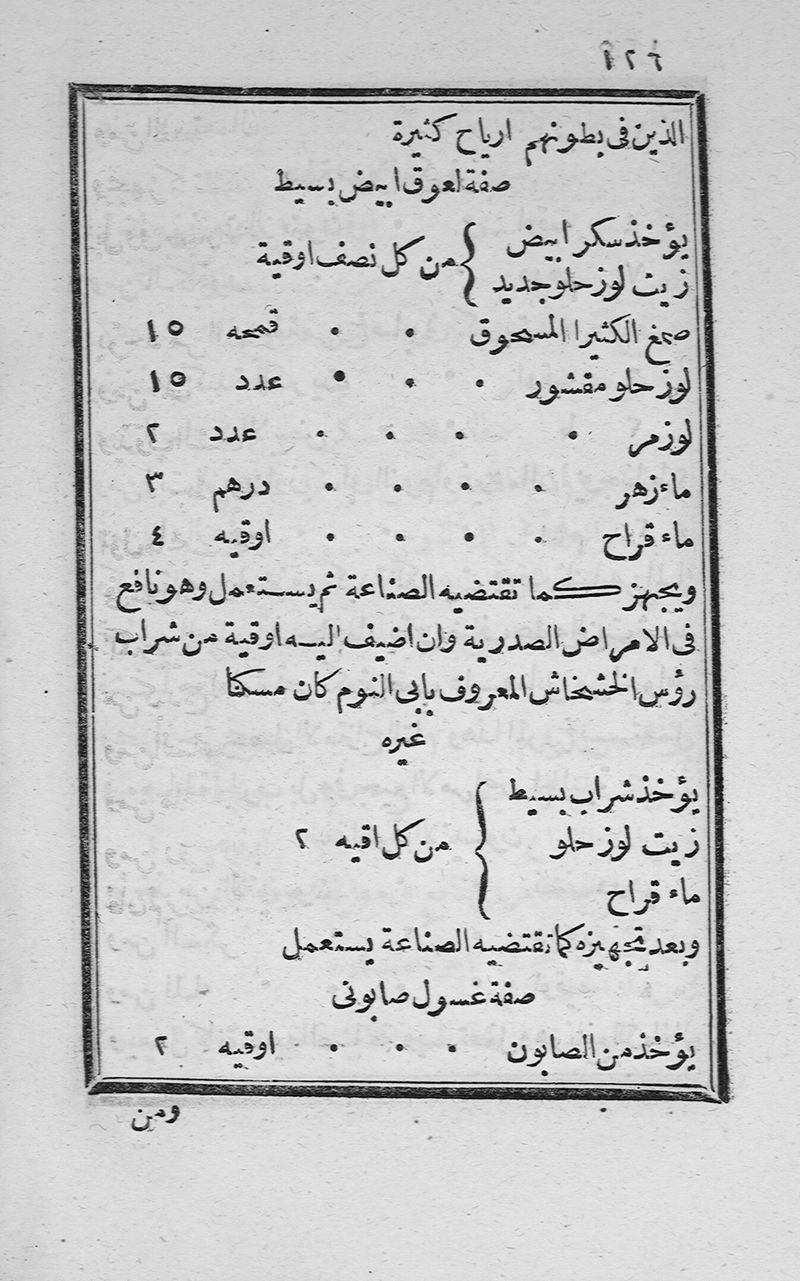 ١٢٦
الذين فى بطونهم ارياح كثيرة
صفة لعوق ابيض بسيط
يؤخذ سكر ابيض
زيت لوز حلو جديد } من كل نصف اوقية
صمغ الكثيرا المسحوق • • قمحه ١٥
لوز حلو مقشور • • • عدد ١٥
لوز مر • • • • عدد ٢
ماء زهر • • • • درهم ٣
ماء قراح • • • • اوقيه ٤
ويجهز كما تقتضيه الصناعة ثم يستعمل وهو نافع
فى الامراض الصدرية وان اضيف اليه اوقية من شراب
رؤس الخشخاش المعروف بابى النوم كان مسكنا
غيره
يؤخذ شراب بسيط
زيت لوز حلو } من كل اقيه ٢
ماء قراح
وبعد تجهيزه كما تقتضيه الصناعة يستعمل
صفة غسول صابونى
يؤخذ من الصابون • • • اوقيه ٢
ومن